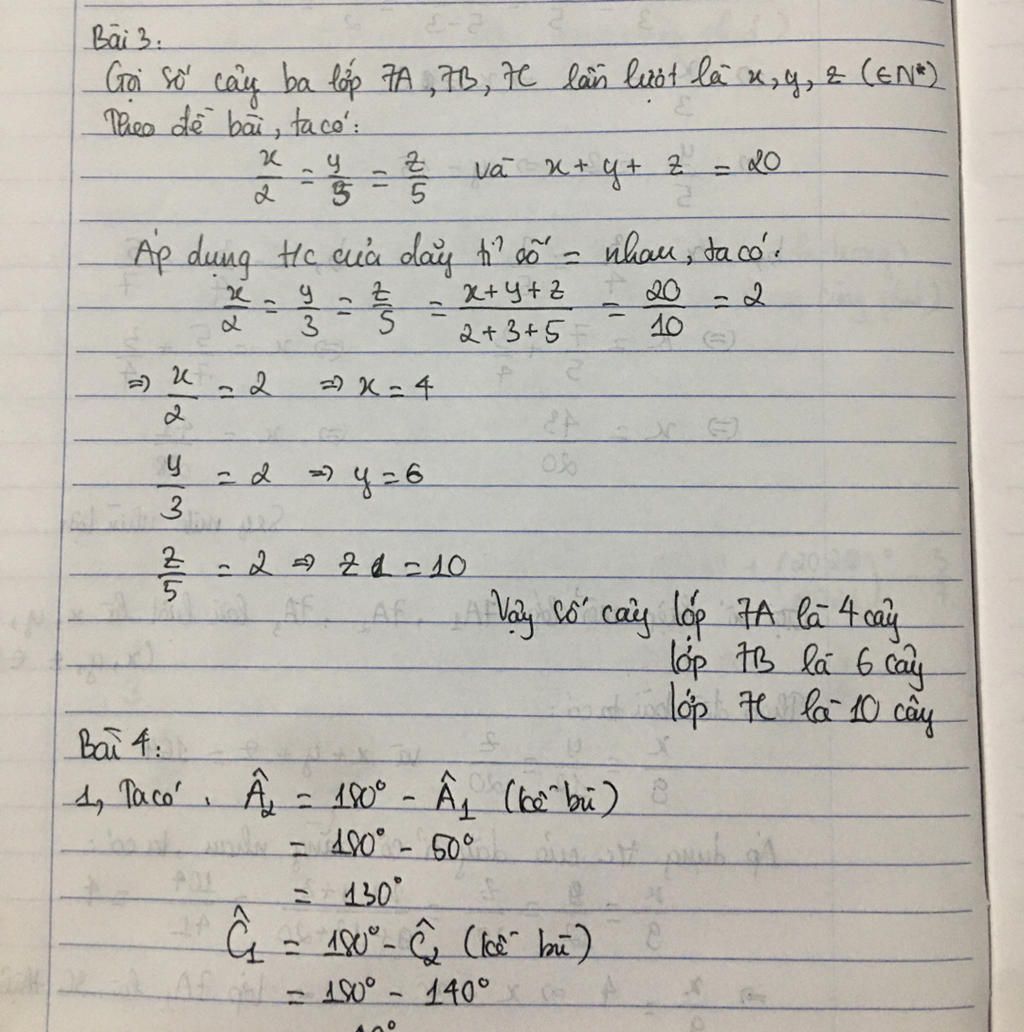 Bài 3:
Gọi số cây ba lớp 7A, 7B, 7C lần lượt là x, y, z (∈N*)
Theo đề bài, ta có:
x/2 = y/3 = z/5 và x + y + z = 20
Áp dụng t/c của dãy tỉ số = nhau, ta có:
x/2 = y/3 = z/5 = (x+y+z)/(2+3+5) = 20/10 = 2
⇒ x/2 = 2 ⇒ x = 4
y/3 = 2 ⇒ y = 6
z/5 = 2 ⇒ z = 10
Vậy số cây lớp 7A là 4 cây
lớp 7B là 6 cây
lớp 7C là 10 cây
Bài 4:
1, Ta có: Â2 = 180° - Â1 (kề bù)
= 180° - 50°
= 130°
Ĉ1 = 180° - Ĉ2 (kề bù)
= 180° - 140°